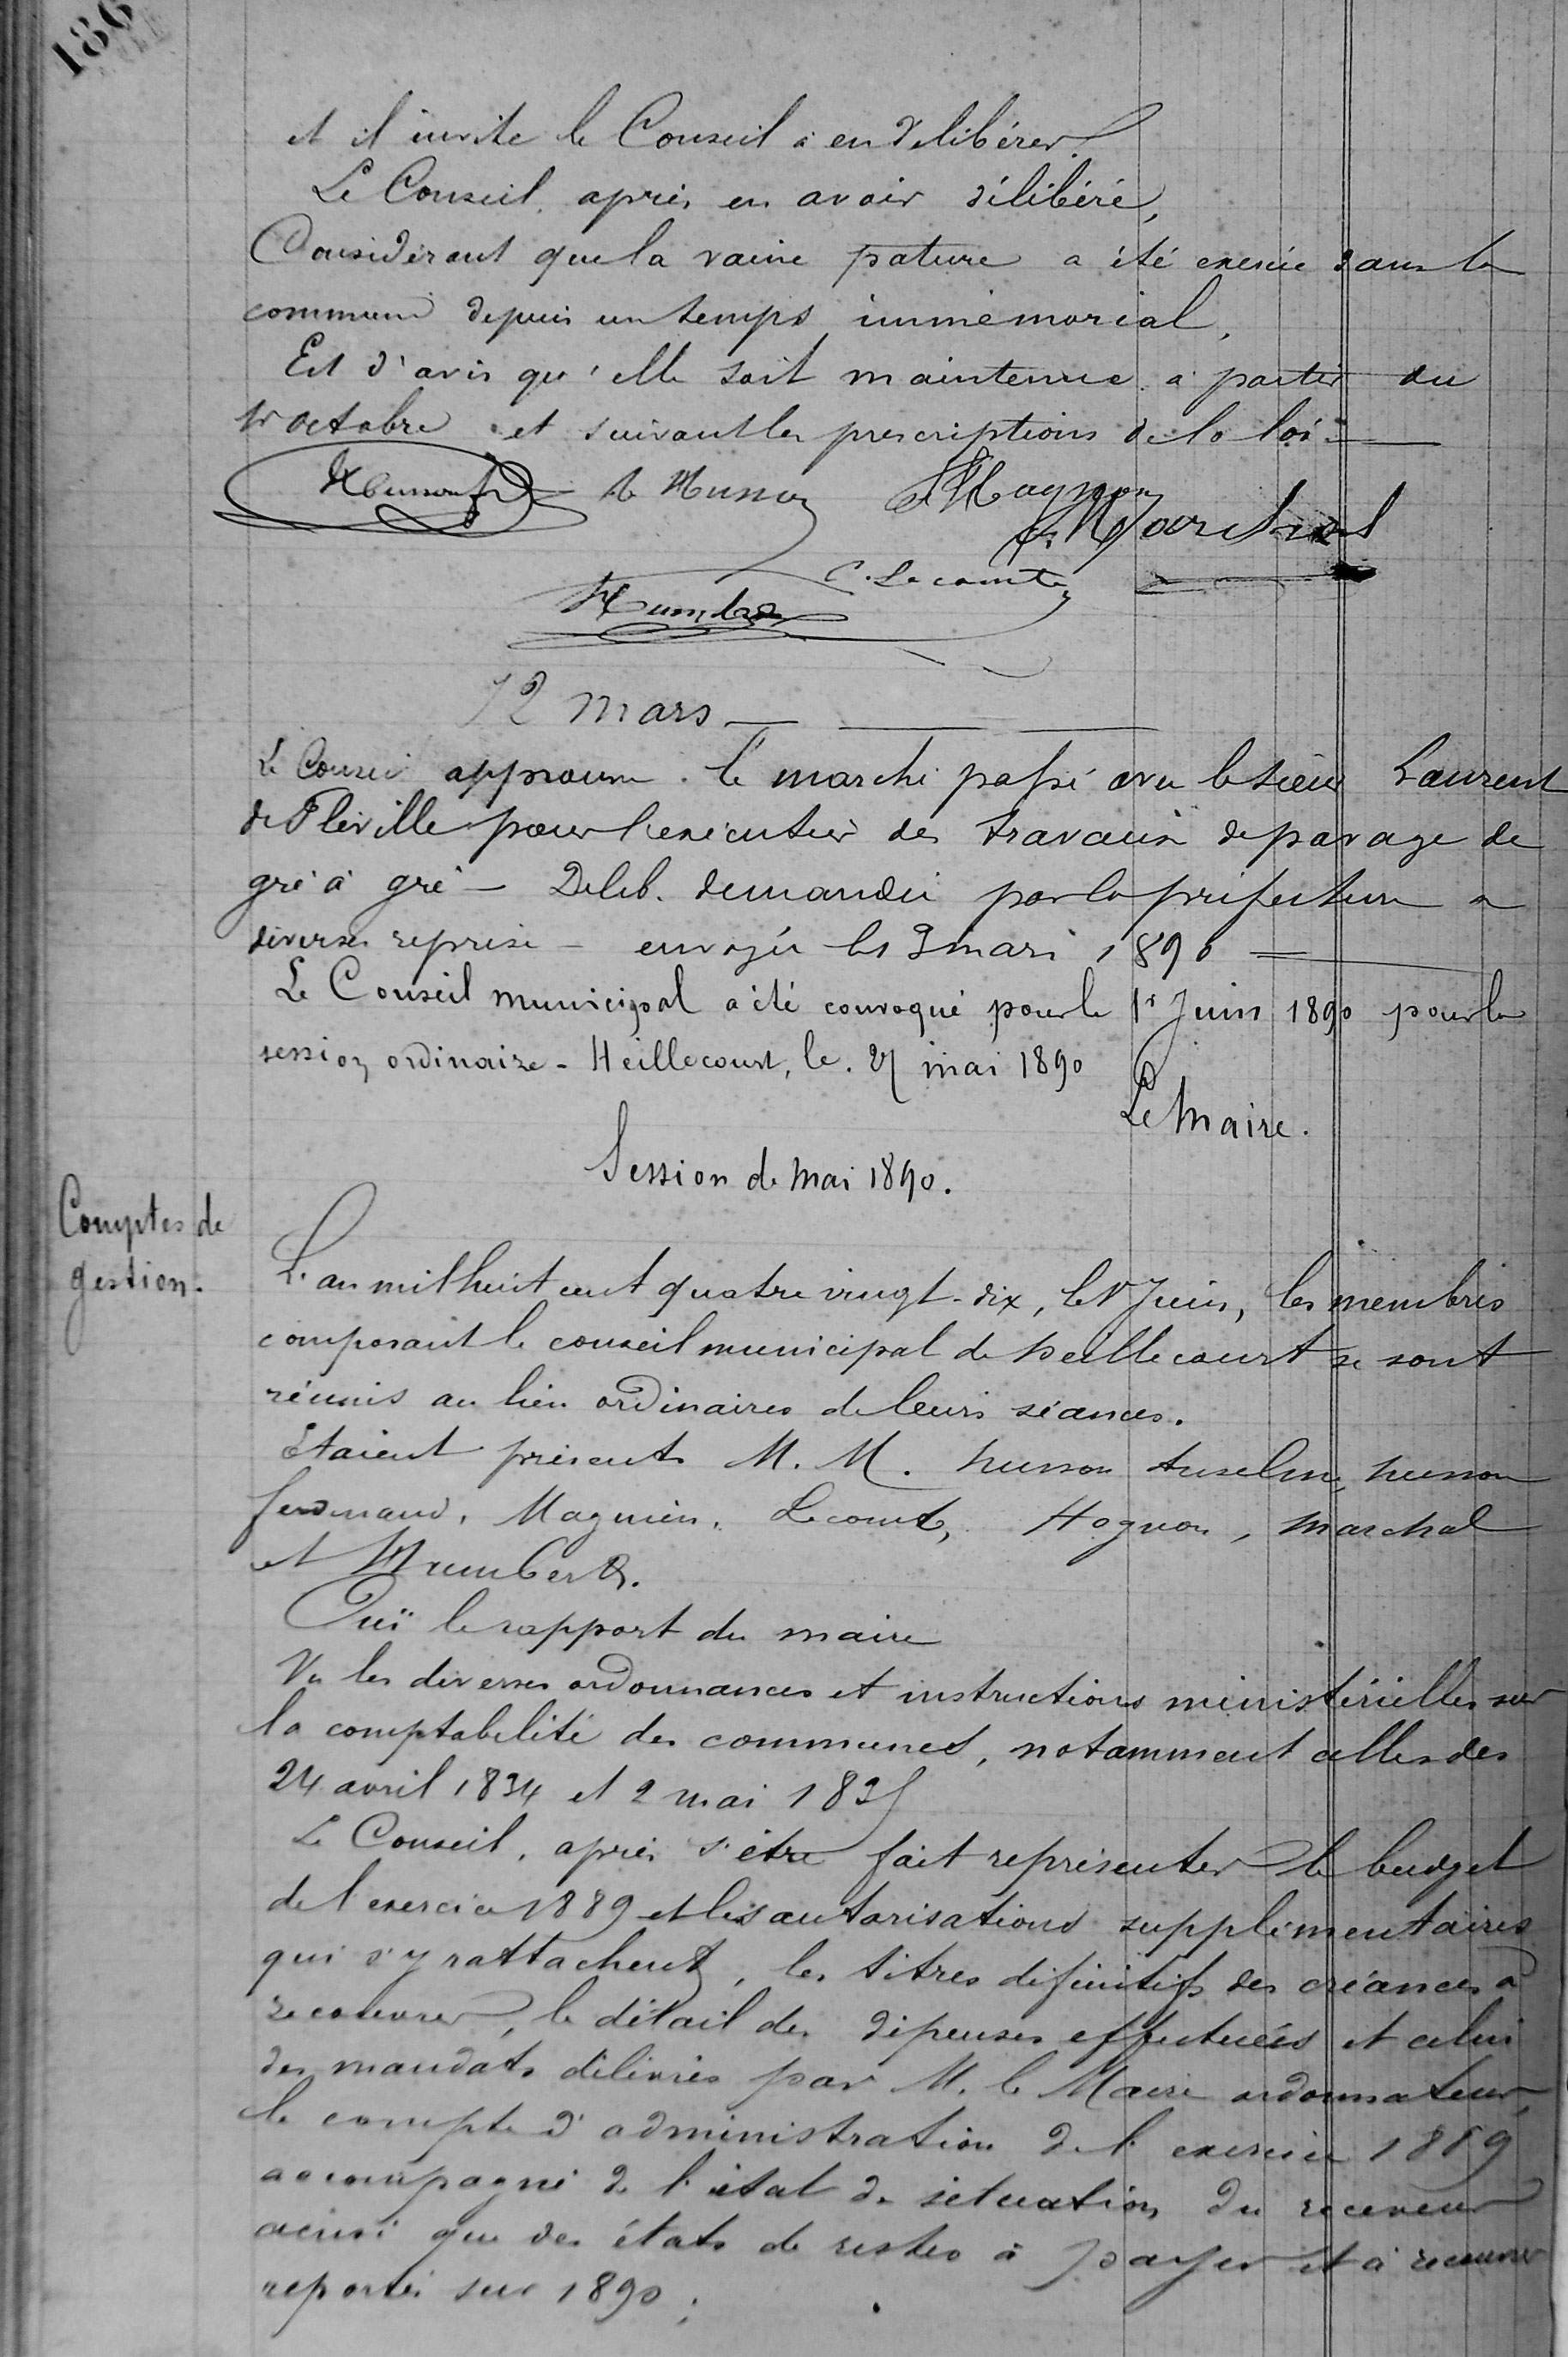 186
et il invite le Conseil à en délibérer.
Le Conseil, après en avoir délibéré,
Considérant que la vaine pature a été exercée dans la
commune depuis un temps immémorial,
Est d'avis qu'elle soit maintenue à partir du
1r octobre et suivant les prescriptions de la loi.
Husson f A Husson Magnien
Marchal
C. Lecomte
Humbert
12 mars
Le Conseil approuve le marché passé avec le sieur Laurent
de Fléville pour l'exécution des travaux de pavage de
gré à gré - Délib. demandée par la préfecture a
diverses reprise - envoyée le 13 mars 1890
Le Conseil municipal a été convoqué pour le 1r Juin 1890 pour la
session ordinaire - Heillecourt, le 27 mai 1890
Le Maire.
Session de Mai 1890.
Comptes de
gestion.
L'an mil huit cent quatre vingt-dix, le 1r Juin, les membres
composant le conseil municipal de heillecourt se sont
réunis au lieu ordinaires de leurs séances.
Etaient présents M. M. husson Anselme, husson
ferdinand, Magnien, Lecomte, Hognon, Marchal
et Humbert.
Ouï le rapport du maire
Vu les diverses ordonnances et instructions ministérielles sur
la comptabilité des communes, notamment celles des
24 avril 1834 et 2 mai 1835
Le Conseil, après s'être fait représenter le budget
de l'exercice 1889 et les autorisations supplémentaires
qui s'y rattachent, les titres définitifs des créances à
recouvrer, le détail des dépenses effectuées et celui
des mandats délivrés par M. le Maire ordonnateur,
le compte d'administration de l'exercice 1889
accompagné de l'état de situation du receveur
ainsi que des états de restes à payer et à recouvrer
reportés sur 1890 ;